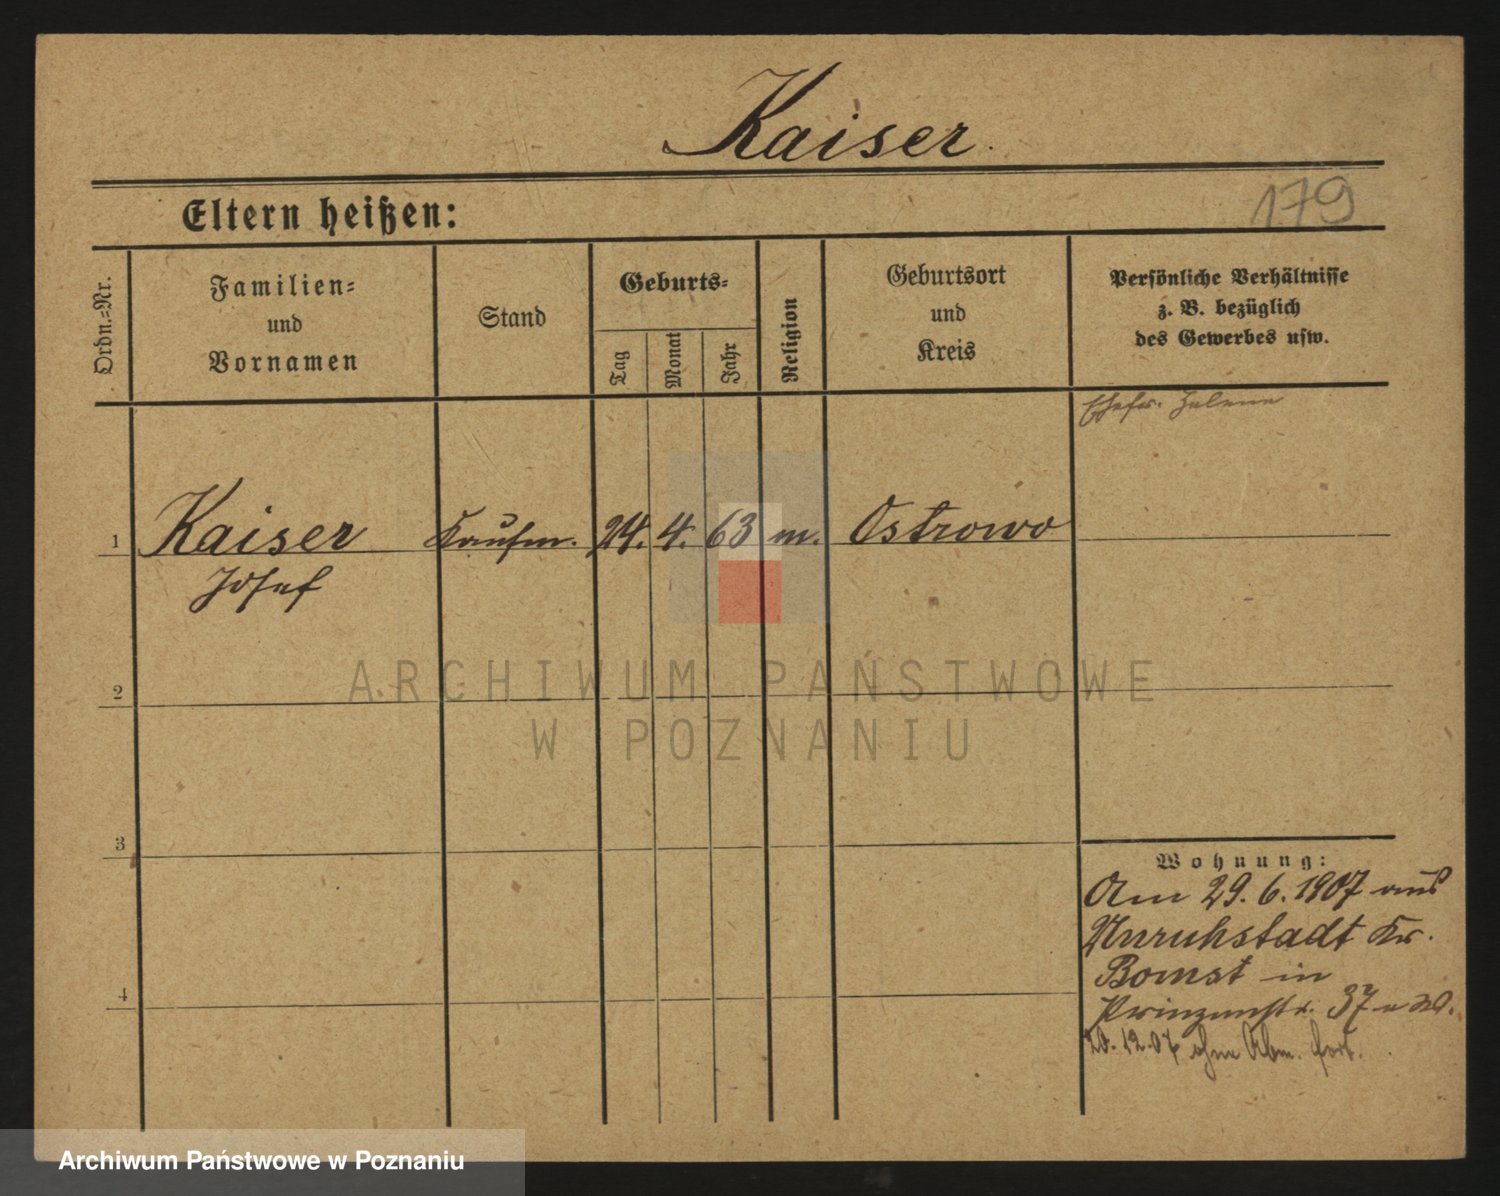 Kaiser.
179
Eltern heißen:
Ordn.=Nr.
Familien=
und
Vornamen
Stand
Geburts=
Tag
Monat
Jahr
Religion
Geburtsort
und
Kreis
Persönliche Verhältnisse
z. B. bezüglich
des Gewerbes usw.
Ehefr. Helene
1
Kaiser
Kaufm.
24.
4.
63
m.
Ostrowo
Josef
2
ARCHIWUM PAŃSTWOWE
W POZNANIU
3
Wohnung:
Am 29. 6. 1907 aus
Unruhstadt Kr.
Bomst in
4
Prinzenstr. 37
20. 12. 07 ohne Abm. fort.
Archiwum Państwowe w Poznaniu